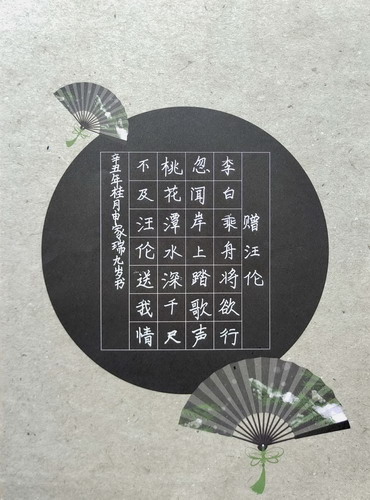 赠汪伦
李白乘舟将欲行
忽闻岸上踏歌声
桃花潭水深千尺
不及汪伦送我情
辛丑年桂月申家瑞九岁书